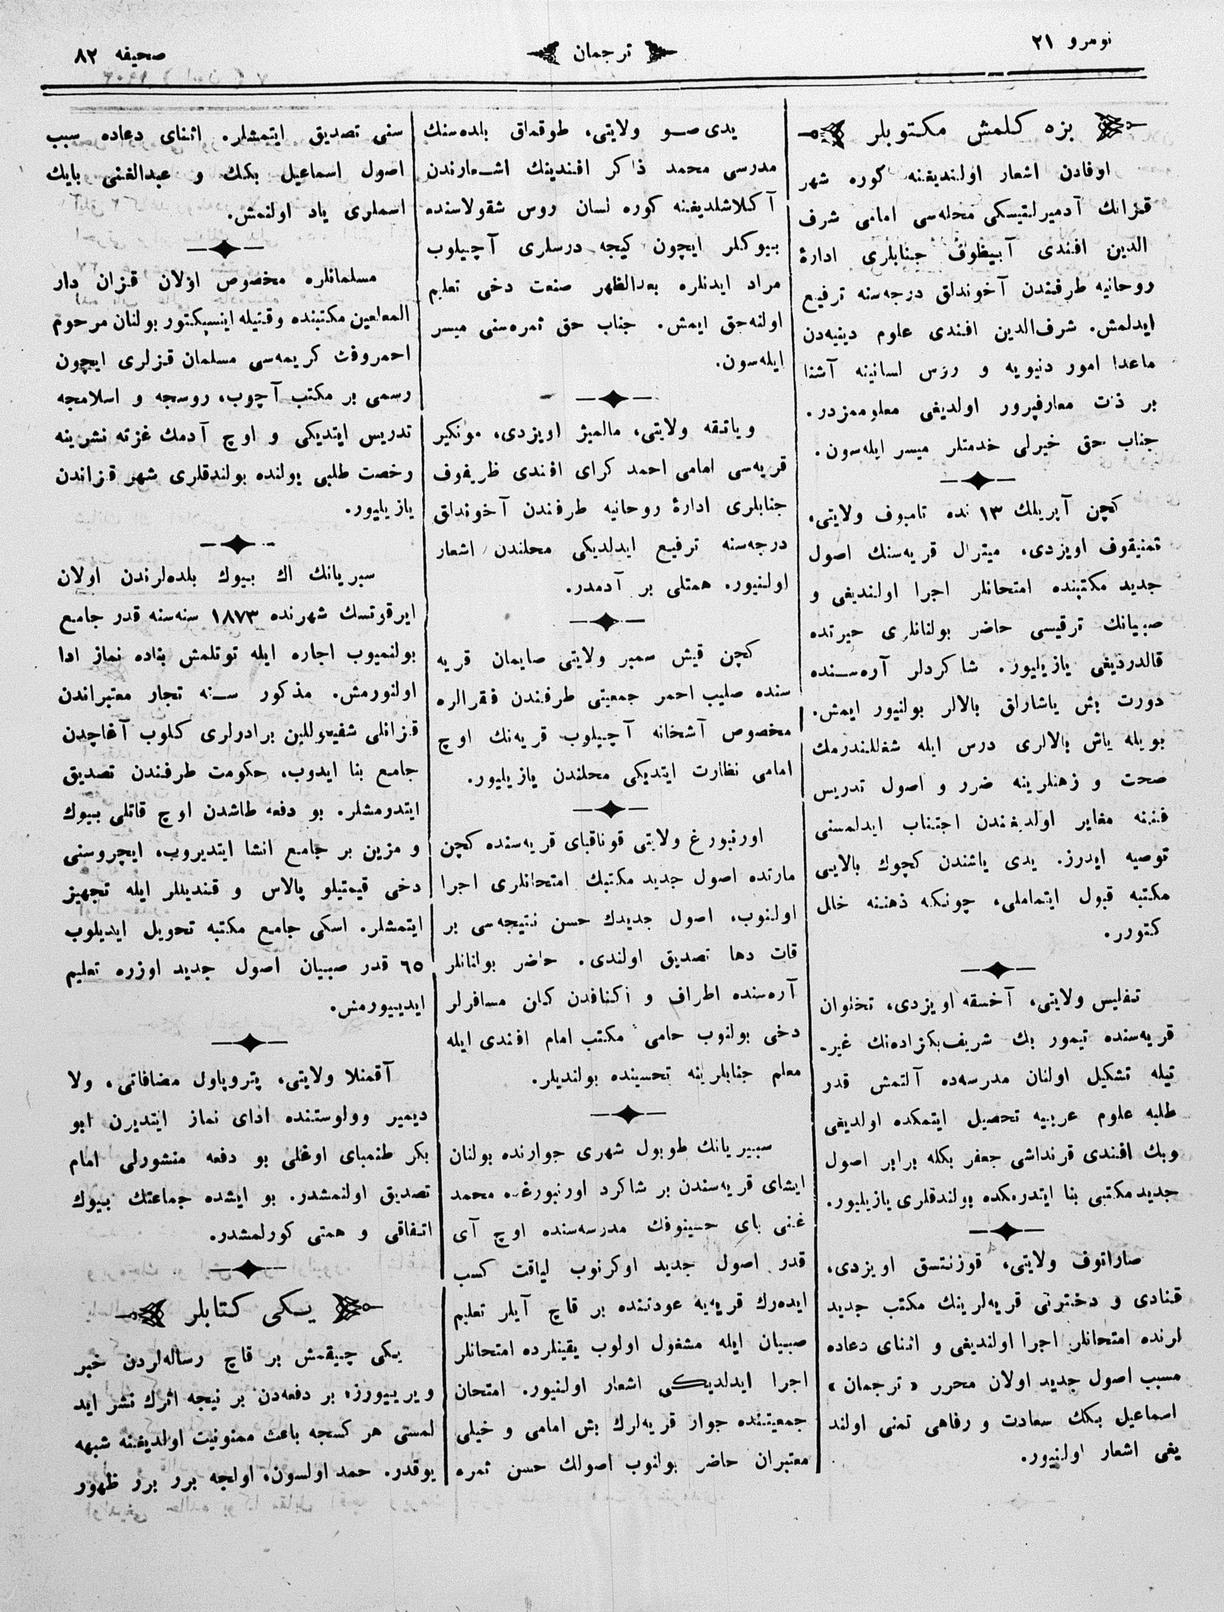 نومرو ٢١
ترجمان
صحیفه ٨٢
بزه كلمش مكتوبلر
اوفادن اشعار اولندیغنه كوره شهر
قزانك آدمیرلتیسكی محله‌سی امامی شرف
الدین افندی آبیظوف جنابلری ادارهٔ
روحانیه طرفندن آخوندلق درجه‌سنه ترفیع
ایدلمش. شرف‌الدین افندی علوم دینیه‌دن
ماعدا امور دنیویه و روس لسانینه آشنا
بر ذات معارفپرور اولدیغی معلوممزدر.
جناب حق خیرلی خدمتلر میسر ایله‌سون.
كچن آپریلك ١٣ نده تامبوف ولایتی،
تمنیقوف اویزدی، میترال قریه‌سنك اصول
جدید مكتبنده امتحانلر اجرا اولندیغی و
صبیانك ترقیسی حاضر بولنانلری حیرتده
قالدردیغی یازیلیور. شاكردلر آره‌سنده
دورت بش یاشاراق بالالر بولنیور ایمش.
بویله یاش بالالری درس ایله شغللندرمك
صحت و زهنلرینه ضرر و اصول تدریس
فننه مغایر اولدیغندن اجتناب ایدلمسنی
توصیه ایدرز. یدی یاشندن كچوك بالایی
مكتبه قبول ایتماملی، چونكه ذهننه خلل
كتورر.
تفلیس ولایتی، آخسقه اویزدی، تخلوان
قریه‌سنده تیمور بك شریف‌بكزاده‌نك غیر-
تیله تشكیل اولنان مدرسه‌ده آلتمش قدر
طلبه علوم عربیه تحصیل ایتمكده اولدیغی
وبك افندی قرنداشی جعفر بكله برابر اصول
جدید مكتبی بنا ایتدرمكده بولندقلری یازیلیور.
صاراتوف ولایتی، قوزنتسق اویزدی،
قنادی و دخترنی قریه‌لرینك مكتب جدید
لرنده امتحانلر اجرا اولندیغی و اثنای دعاده
مسبب اصول جدید اولان محرر «ترجمان»
اسماعیل بكك سعادت و رفاهی تمنی اولند
یغی اشعار اولنیور.
یدی صو ولایتی، طوقماق بلده‌سنك
مدرسی محمد ذاكر افندینك اشعارندن
آكلاشلدیغنه كوره لسان روس شقولاسنده
بیوكلر ایچون كیجه درسلری آچیلوب
مراد ایدنلره بعدالظهر صنعت دخی تعلیم
اولنه‌جق ایمش. جناب حق ثمره‌سنی میسر
ایله‌سون.
ویاتقه ولایتی، مالمیژ اویزدی، مونكیر
قریه‌سی امامی احمد كرای افندی ظریفوف
جنابلری ادارهٔ روحانیه طرفندن آخوندلق
درجه‌سنه ترفیع ایدلدیكی محلندن اشعار
اولنیور. همتلی بر آدمدر.
كچن قیش سمبر ولایتی صایمان قریه
سنده صلیب احمر جمعیتی طرفندن فقرالره
مخصوص آشخانه آچیلوب قریه‌نك اوچ
امامی نظارت ایتدیكی محلندن یازیلیور.
اورنبورغ ولایتی قوناقبای قریه‌سنده كچن
مارتده اصول جدید مكتبك امتحانلری اجرا
اولنوب، اصول جدیدك حسن نتیجه‌سی بر
قات دها تصدیق اولندی. حاضر بولنانلر
آره‌سنده اطراف و اكنافدن كلن مسافرلر
دخی بولنوب حامی مكتب امام افندی ایله
معلم جنابلرینه تحسینده بولندیلر.
سیبریانك طوبول شهری جوارنده بولنان
ایشای قریه‌سندن بر شاكرد اورنبورغه محمد
غنی بای حسینوفك مدرسه‌سنده اوچ آی
قدر اصول جدید اوكرنوب لیاقت كسب
ایده‌رك قریه‌یه عودتنده بر قاچ آیلر تعلیم
صبیان ایله مشغول اولوب یقینلرده امتحانلر
اجرا ایدلدیكی اشعار اولنیور. امتحان
جمعیتنده جوار قریه‌لرك بش امامی و خیلی
معتبران حاضر بولنوب اصولك حسن ثمره
سنی تصدیق ایتمشلر. اثنای دعاده سبب
اصول اسماعیل بكك و عبدالغنی بایك
اسملری یاد اولنمش.
مسلمانلره مخصوص اولان قزان دار
المعلمین مكتبنده وقتیله اینسپكتور بولنان مرحوم
احمروفك كریمه‌سی مسلمان قزلری ایچون
رسمی بر مكتب آچوب، روسجه و اسلامجه
تدریس ایتدیكی و اوچ آدمك غزته نشرینه
رخصت طلبی یولنده بولندقلری شهر قزاندن
یازیلیور.
سبریانك اك بیوك بلده‌لرندن اولان
ایرقوتسك شهرنده ١٨٧٣ سنه‌سنه قدر جامع
بولنمیوب اجاره ایله توتلمش بناده نماز ادا
اولنورمش. مذكور سنه تجار معتبراندن
قزانلی شفیعوللین برادرلری كلوب آغاچدن
جامع بنا ایدوب، حكومت طرفندن تصدیق
ایتدرمشلر. بو دفعه طاشدن اوچ قاتلی بیوك
و مزین بر جامع انشا ایتدیروب، ایچروسنی
دخی قیمتیلو پالاس و قندیللر ایله تجهیز
ایتمشلر. اسكی جامع مكتبه تحویل ایدیلوب
٦٥ قدر صبیان اصول جدید اوزره تعلیم
ایدییورمش.
آقمنلا ولایتی، پتروپاول مضافاتی، ولا
دیمیر وولوستنده ادای نماز ایتدیرن ابو
بكر طنمبای اوغلی بو دفعه منشورلی امام
تصدیق اولنمشدر. بو ایشده جماعتك بیوك
اتفاقی و همتی كورلمشدر.
یـكی كتابلر
یكی چیقمش بر قاچ رساله‌لردن خبر
ویرییورز، بر دفعه‌دن بر نیجه اثرك نشر اید
لمسی هر كسجه باعث ممنونیت اولدیغنه شبهه
یوقدر. حمد اولسون، اولجه برر برر ظهور